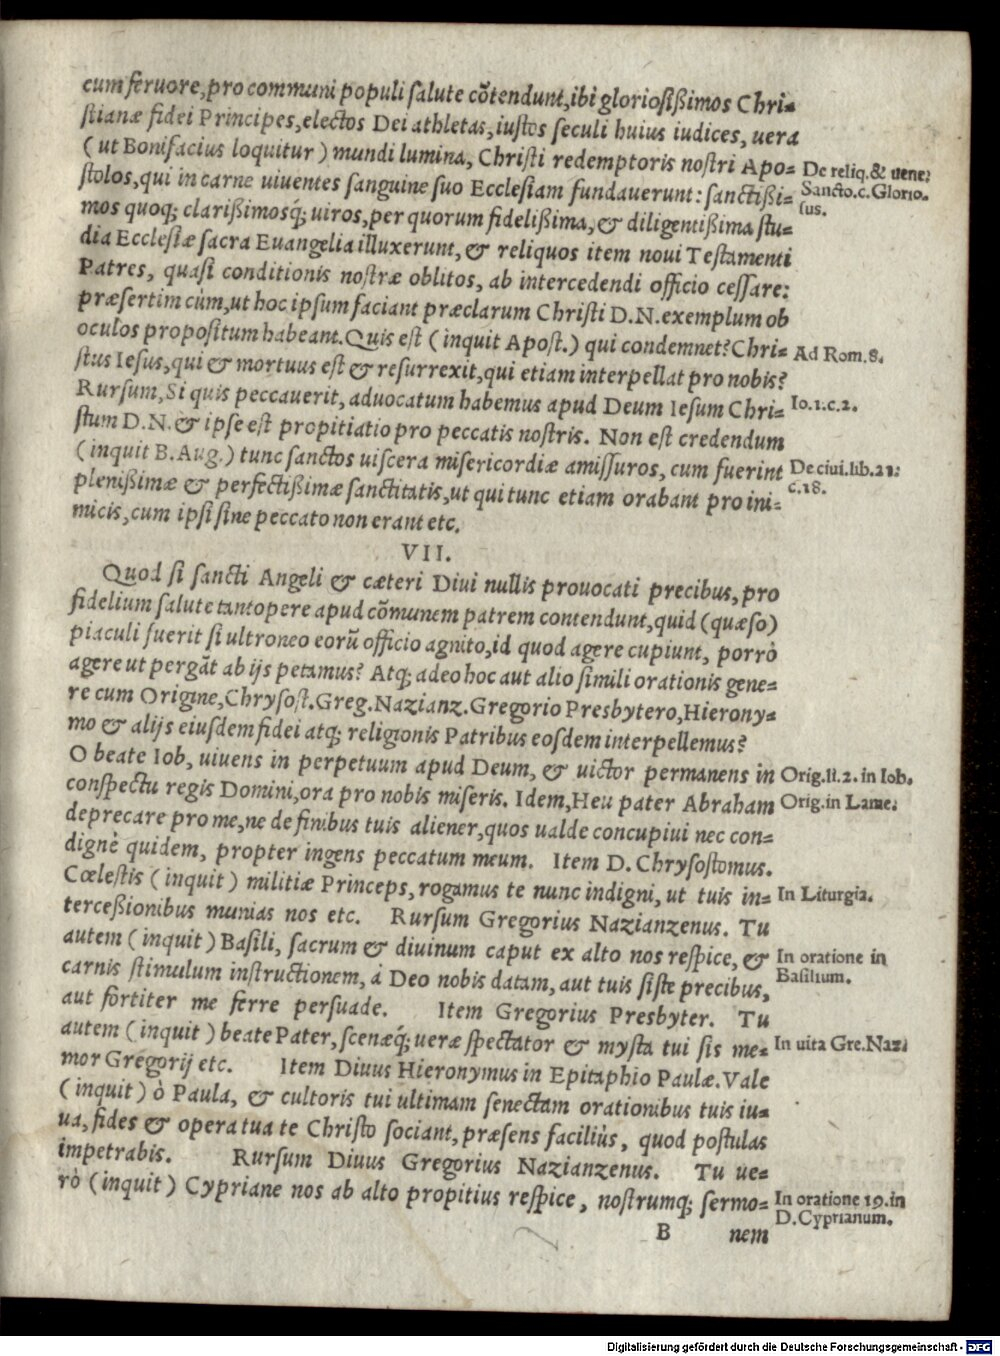 cum feruore, pro communi populi ſalute cõtendunt, ibi glorioſißimos Chri-
ſtianæ fidei Principes, electos Dei athletas, iuſtos ſeculi huius iudices, uera
( ut Bonifacius loquitur ) mundi lumina, Chriſti redemptoris noſtri Apo- De reliq. & uene:
ſtolos, qui in carne uiuentes ſanguine ſuo Eccleſiam fundauerunt: ſanctißi- Sancto. c. Glorio.
mos quoq; clarißimosq́; uiros, per quorum fidelißima, & diligentißima ſtu- ſus.
dia Eccleſiæ ſacra Euangelia illuxerunt, & reliquos item noui Teſtamenti
Patres, quaſi conditionis noſtræ oblitos, ab intercedendi officio ceſſare:
præſertim cùm, ut hoc ipſum faciant præclarum Chriſti D. N. exemplum ob
oculos propoſitum habeant. Quis eſt ( inquit Apoſt. ) qui condemnet? Chri- Ad Rom. 8.
ſtus Ieſus, qui & mortuus eſt & reſurrexit, qui etiam interpellat pro nobis?
Rurſum, Si quis peccauerit, aduocatum habemus apud Deum Ieſum Chri- Io. 1. c. 2.
ſtum D. N. & ipſe eſt propitiatio pro peccatis noſtris. Non eſt credendum
( inquit B. Aug. ) tunc ſanctos uiſcera miſericordiæ amiſſuros, cum fuerint De ciui. lib. 21:
plenißimæ & perfectißimæ ſanctitatis, ut qui tunc etiam orabant pro ini- c. 18.
micis, cum ipſi ſine peccato non erant etc.
VII.
Quod ſi ſancti Angeli & cæteri Diui nullis prouocati precibus, pro
fidelium ſalute tantopere apud cõmunem patrem contendunt, quid (quæſo)
piaculi fuerit ſi ultroneo eorũ officio agnito, id quod agere cupiunt, porrò
agere ut pergãt ab ijs petamus? Atq; adeo hoc aut alio ſimili orationis gene-
re cum Origine, Chryſoſt. Greg. Nazianz. Gregorio Presbytero, Hierony-
mo & alijs eiuſdem fidei atq; religionis Patribus eoſdem interpellemus?
O beate Iob, uiuens in perpetuum apud Deum, & uictor permanens in Orig. li. 2. in Iob.
conſpectu regis Domini, ora pro nobis miſeris. Idem, Heu pater Abraham Orig. in Lame.
deprecare pro me, ne de finibus tuis aliener, quos ualde concupiui nec con-
dignè quidem, propter ingens peccatum meum. Item D. Chryſoſtomus.
Cœleſtis ( inquit ) militiæ Princeps, rogamus te nunc indigni, ut tuis in- In Liturgia.
terceßionibus munias nos etc. Rurſum Gregorius Nazianzenus. Tu
autem ( inquit ) Baſili, ſacrum & diuinum caput ex alto nos reſpice, & In oratione in
carnis ſtimulum inſtructionem, à Deo nobis datam, aut tuis ſiſte precibus, Baſilium.
aut fortiter me ferre perſuade. Item Gregorius Presbyter. Tu
autem ( inquit ) beate Pater, ſcenæq́; ueræ ſpectator & myſta tui ſis me- In uita Gre. Naz:
mor Gregorij etc. Item Diuus Hieronymus in Epitaphio Paulæ. Vale
( inquit ) ò Paula, & cultoris tui ultimam ſenectam orationibus tuis iu-
ua, fides & opera tua te Chriſto ſociant, præſens faciliùs, quod poſtulas
impetrabis. Rurſum Diuus Gregorius Nazianzenus. Tu ue-
rò ( inquit ) Cypriane nos ab alto propitius reſpice, noſtrumq; ſermo- In oratione 19. in
D. Cyprianum.
B nem
Digitalisierung gefördert durch die Deutsche Forschungsgemeinschaft - DFG